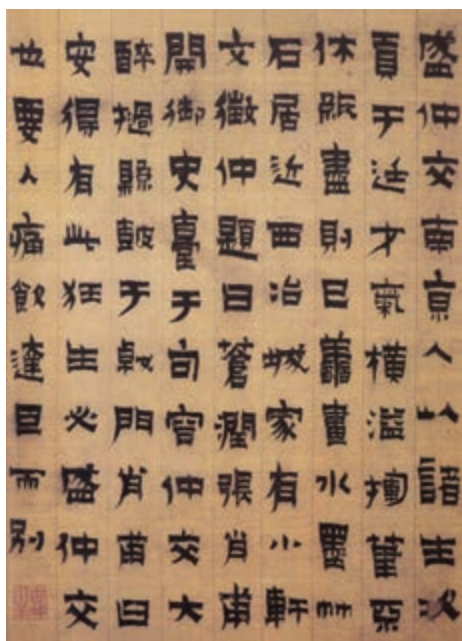 盛仲交南京人以諸生次
貢于廷才氣橫溢揮筆
盡則已善畫水墨竹
石居近西冶城家有小軒
文徵仲題曰蒼潤張肖甫
開御史臺于句容仲交大
醉撾縣鼓于戟門肖甫曰
安得有此狂生必盛仲交
也要入痛飲達旦而別